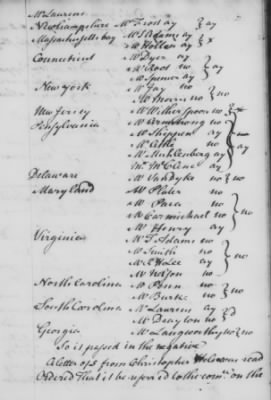 Mr Laurens
New hampshire Mr Frost ay } ay
Massachusetts bay Mr S Adams ay } x
Mr Holten ay
Connecticut Mr Dyer ay
Mr Root no } ay
Mr Spencer ay
New York Mr Jay no
Mr Morris no } no
New Jersey Mr Witherspoon no } x
Pensylvania Mr Armstrong no
Mr Shippen ay
Mr Atlee no } ay
Mr Muhlenberg ay
Mr McClene ay
Delaware Mr Vandyke no } no
Maryland Mr Plater no
Mr Paca no
Mr Carmichael no } no
Mr Henry ay
Virginia Mr T. Adams no
Mr Smith no } no
Mr R H Lee ay
Mr Nelson no
North Carolina Mr Penn no
Mr Burke no } no
South Carolina Mr Laurens ay
Mr Drayton no } d
Georgia Mr Langworthy no } no
So it passed in the negative
A letter of 5 from Christopher read
Ordered That it be referred to the comee on the